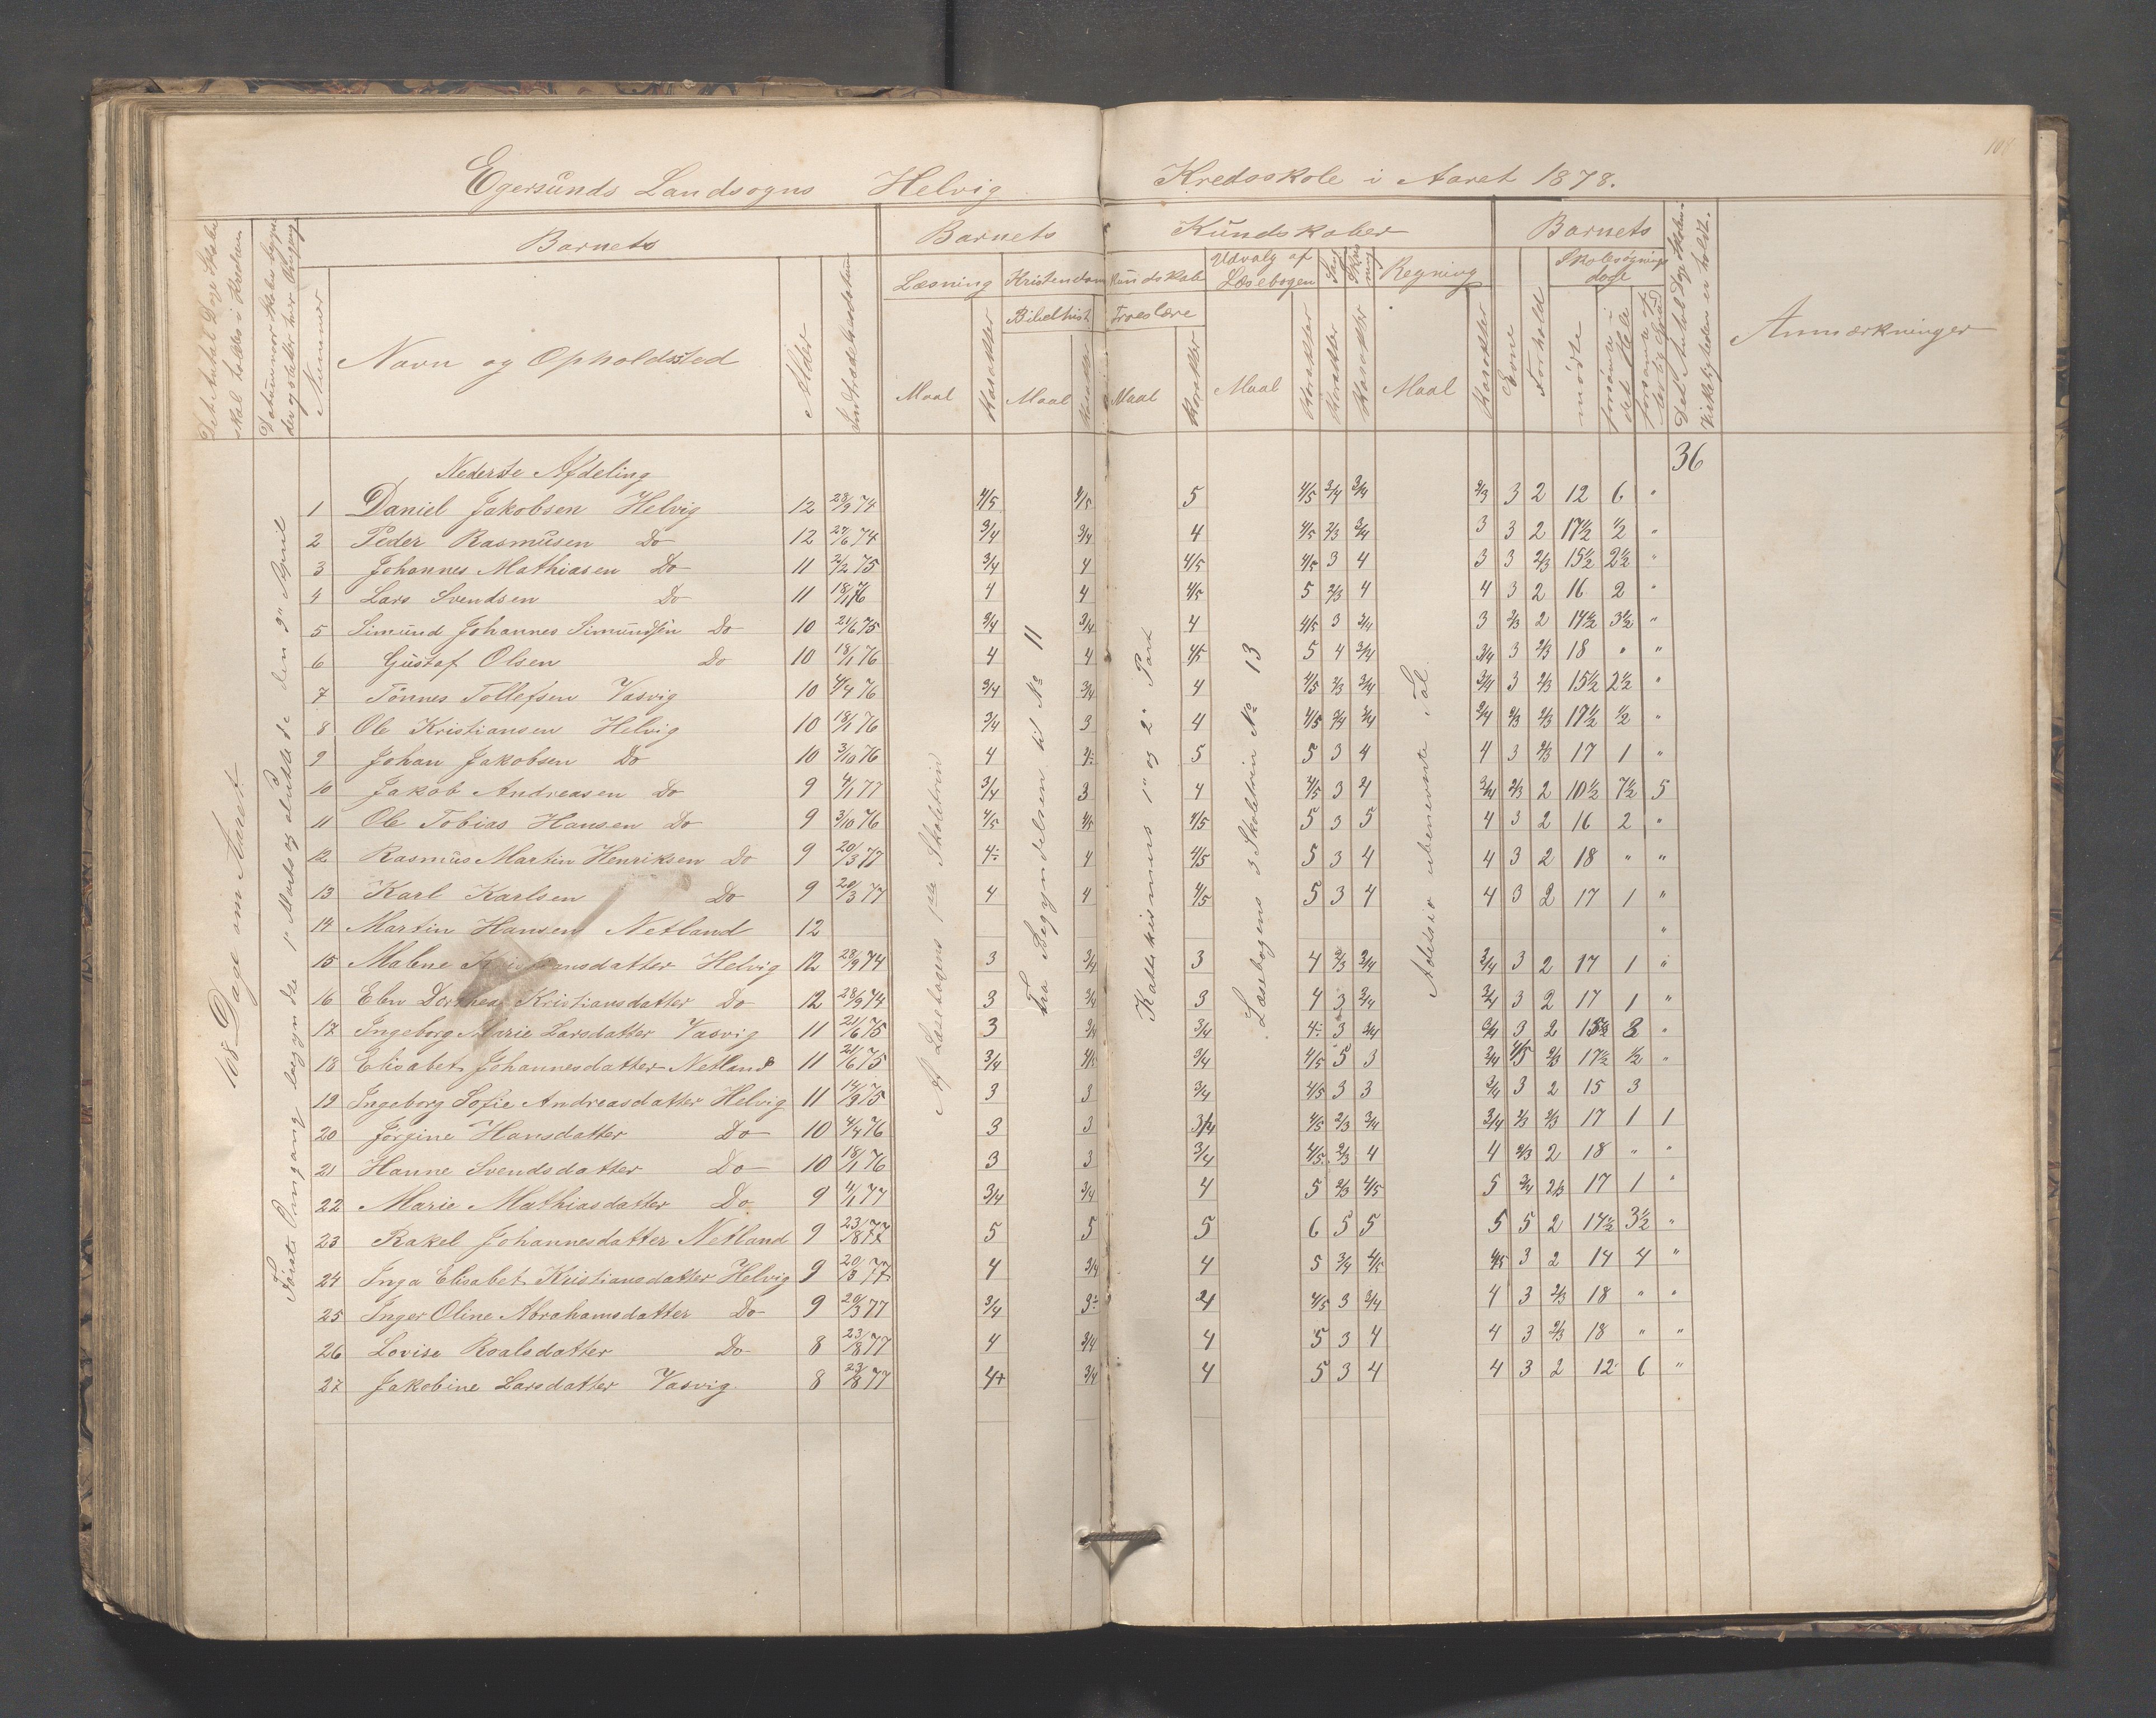 104
Egersunds Landsogns Helvig Kredsskole i Aaret 1878.
Det Antal Dage Skole skal holdes i Kredsen
Datum naar Skolen begynder og slutter hver Omgang
Nummer
Barnets
Navn og Opholdssted
Alder
Indtrædelsesdatum
Barnets Kundskaber
Læsning
Maal
Karakter
Kristendoms Kundskab
Bibelhist.
Maal
Karakter
Troeslære
Maal
Karakter
Udvalg af Læsebogen
Maal
Karakter
Sang
Karakter
Skrivning
Karakter
Regning
Maal
Karakter
Barnets
Evne
Forhold
Skolesøgningsdage
mødte
forsømte i det Hele
forsømte af lovlig Grund
Det Antal Dage Skolen i Virkeligheden er holdt.
Anmærkninger
168 Dage om Aaret
Første Omgang begyndte 1e Marts og sluttede den 9de April
Nederste Afdeling 36
1 Daniel Jakobsen Helvig 12 28/9 74 4/5 4/5 5 4/5 3/4 3/4 2/3 3 2 12 6 "
2 Peder Rasmusen Do 12 27/6 74 3/4 3/4 4 4/5 2/3 3/4 3 3 2 17½ ½ "
3 Johannes Mathiasen Do 11 2/2 75 3/4 4 4/5 4/5 3 4 3 3 2/3 15½ 2½ "
4 Lars Svendsen Do 11 18/1 76 4 4 4/5 5 2/3 4 4 3 2 16 2 "
5 Simund Johannes Simundsen Do 10 21/6 75 3/4 3/4 4 4/5 3 3/4 3 2/3 2 14½ 3½ "
6 Gustaf Olsen Do 10 18/1 76 4 4 4/5 5 4 3/4 3/4 3 2/3 18 " "
7 Tönnes Tollefsen Vasvig 10 4/4 76 3/4 3/4 4 4/5 2/3 3/4 3/4 3 2/3 15½ 2½ "
8 Ole Kristiansen Helvig 10 18/1 76 3/4 3 4 4/5 3/4 3/4 3/4 2/3 2/3 17½ ½ "
9 Johan Jakobsen Do 10 3/10 76 4 4÷ 5 5 3 4 4 3 2/3 17 1 "
10 Jakob Andreasen Do 9 4/1 77 3/4 3 4 4/5 3 4 3/4 2/3 2 10½ 7½ 5
11 Ole Tobias Hansen Do 9 3/10 76 4/5 4/5 4/5 5 3 5 4 3 2 16 2 "
12 Rasmus Martin Henriksen Do 9 20/3 77 4÷ 4 4/5 5 3 4 4 3 2 18 " "
13 Karl Karlsen Do 9 20/3 77 4 4 4/5 5 3 4 4 3 2 17 1 "
14 Martin Hansen Netland 12 "
15 Malene Kristiansdatter Helvig 12 28/9 74 3 3/4 3 4 2/3 3/4 3/4 3 2 17 1 "
16 Elen Dorthea Kristiansdatter Do 12 28/9 74 3 3/4 3 4 3 3/4 3/4 3 2 17 1 "
17 Ingeborg Marie Larsdatter Vasvig 11 21/6 75 3 3/4 3/4 4÷ 3 3/4 3/4 3 2 8 "
18 Elisabet Johannesdatter Netland 11 21/6 75 3/4 4/5 3/4 4/5 5 3 3/4 4/5 2/3 17½ ½ "
19 Ingeborg Sofie Andreasdatter Helvig 11 14/9 75 3 3 3/4 4/5 3 3 3/4 3 2 15 3
20 Jörgine Hansdatter Do 10 4/4 76 3 3 3/4 4/5 2/3 3/4 3/4 2/3 2/3 17 1 1
21 Hanne Svendsdatter Do 10 18/1 76 3 3 3/4 4/5 2/3 4 4 2/3 2 18 " "
22 Marie Mathiasdatter Do 9 4/1 77 3/4 3/4 4 5 2/3 4/5 5 3/4 2/3 17 1 "
23 Rakel Johannesdatter Netland 9 23/8 77 5 5 5 6 5 5 5 5 2 14½ 3½ "
24 Inga Elisabet Kristiansdatter Helvig 9 20/3 77 4 3/4 4 5 3/4 4/5 4/5 3 2 14 4 "
25 Inger Oline Abrahamsdatter Do 9 20/3 77 3/4 3÷ 4 4/5 3 3/4 4 3 2/3 18 " "
26 Lovise Roalsdatter Do 8 23/8 77 4 3/4 4 5 3 4 4 3 2/3 18 " "
27 Jakobine Larsdatter Vasvig 8 23/8 77 4+ 3/4 4 5 3 4 4 3 2 12 6 "
Af Læsebogens 1ste Skoletrin
Fra Begyndelsen til No 11
Katekismus 1ste og 2den Part
Læsebogens 3 Skoletrin No 13
Addition ubenevnte Tal.